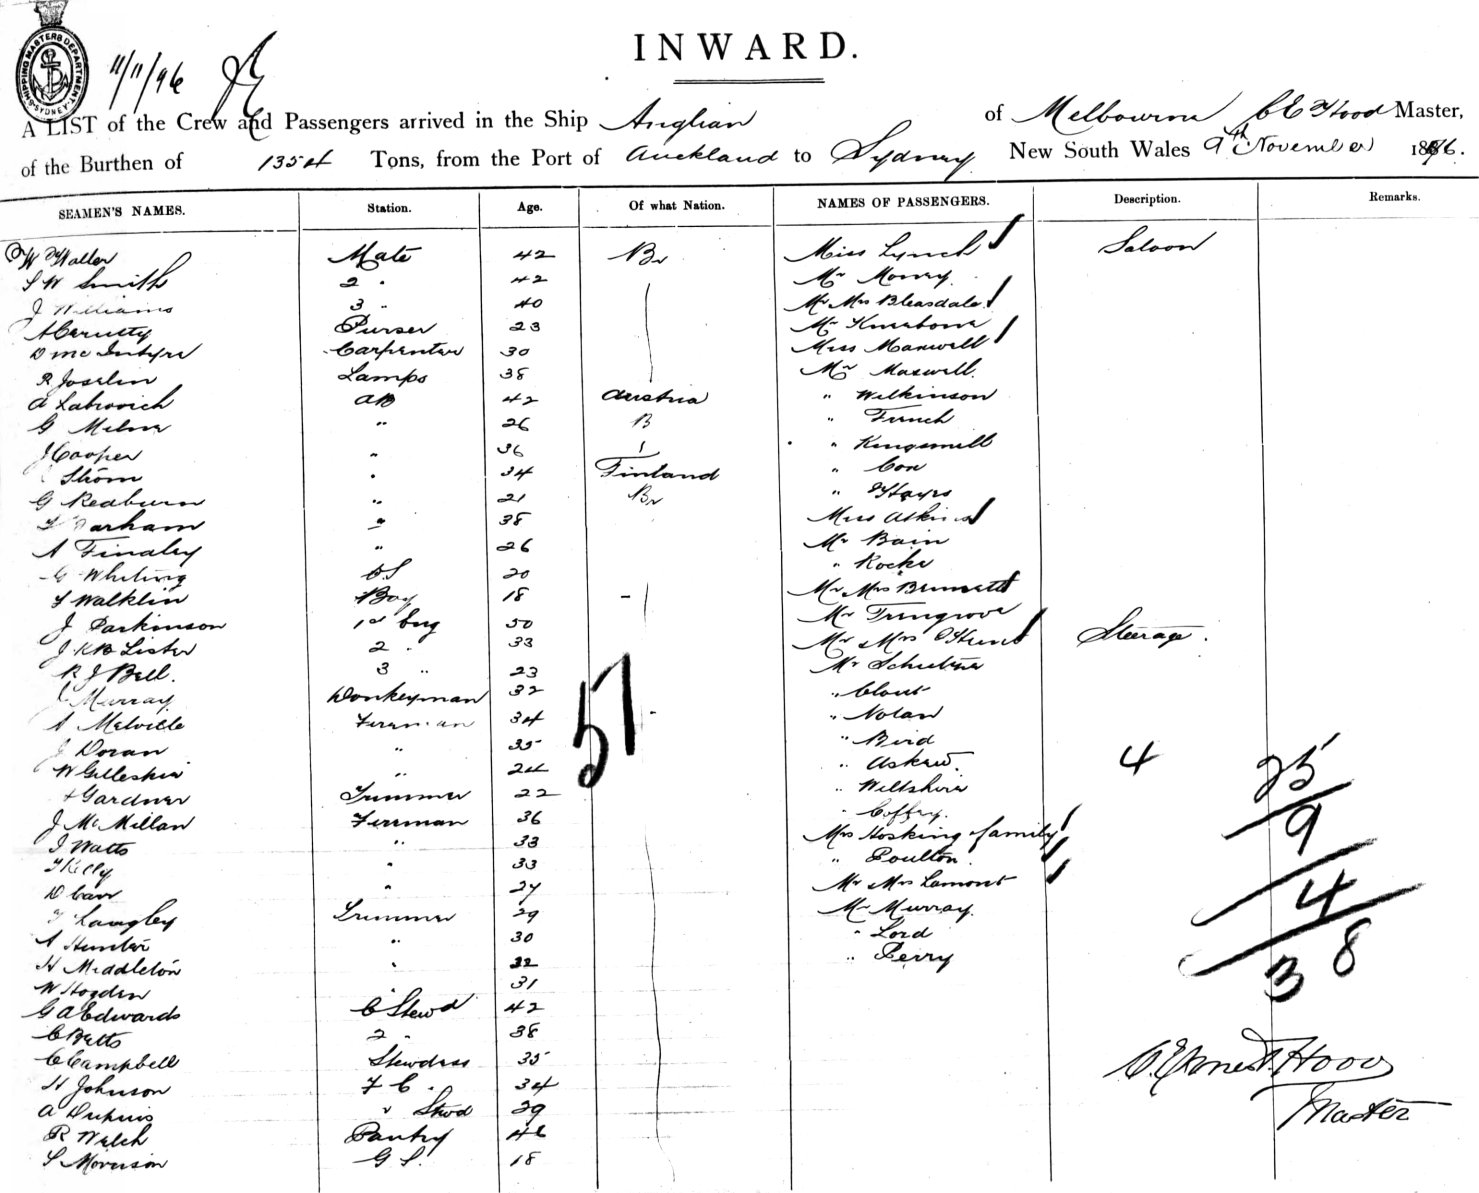 SHIPPING MASTERS DEPARTMENT SYDNEY
11/11/96
INWARD.
A LIST of the Crew and Passengers arrived in the Ship Anglian of Melbourne C E Hood Master,
of the Burthen of 1354 Tons, from the Port of Auckland to Sydney New South Wales 9th November 1896.
SEAMEN'S NAMES. Station. Age. Of what Nation. NAMES OF PASSENGERS. Description. Remarks.
W Waller Mate 42 Br Miss Lynch Saloon
S W Smith 2 " 42 Mr
J Williams 3 " 40 Mr Mrs Bleasdale
A Cerutty Purser 23 Mr
D McIntyre Carpenter 30 Miss Maxwell
R Joselin Lamps 38 Mr Maxwell
A Labrovich AB 42 Austria " Wilkinson
G Milne " 26 B " Finch
J Cooper " 36 " Kingsmill
Ström " 34 Finland " Cox
G Redburn " 21 Br " Hayes
" 38 Miss Askins
A Finaley " 26 Mr Bain
G Whiting OS 20 " Roche
T Walklin Boy 18 Mr Mrs
J Parkinson 1st Eng 50 Mr Trengrove
J K B Lister 2 " 33 Mr & Mrs Hunt Steerage.
R J Bell. 3 " 23 Mr
J Murray Donkeyman 32 " Clout
A Melville Fireman 34 " Nolan
J Doran " 35 " Bird
W Gillespie " 24 " Askew. 4
Gardner Trimmer 22 " Wiltshire
J McMillan Fireman 36 " Coffey.
J Watts " 33 Mrs Hosking & family
T Kelly " 33 " Poulton
D Carr " 27 Mr Mrs Lamont
T Langley Trimmer 29 Mr Murray
A Hunter " 30 " Lord
H Middleton " 22 " Perry
W Hogden " 31
G A Edwards C Stewd 42
C Betts 2 " 38
C Campbell Stewdess 35
H Johnson F C " 34
A Dupuis " Stwd 29
R Welch Pantry 46
S Morrison G S. 18
57
25
9
4
38
C. Ernest Hood
Master